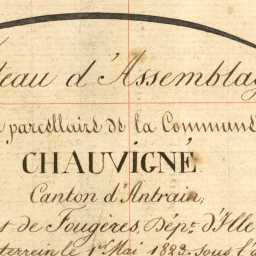 leau d'Assemblag
parcellairs de la Commune
CHAUVIGNÉ
Canton d'Antrain,
t de Fougères, Dép.t d'Ille
terrein le 1.er Mai 1833 sous l'a